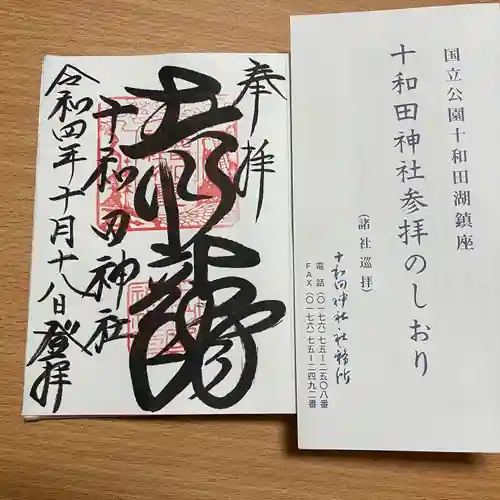 奉拝
青龍
十和田神社
令和四年十月十八日 登拝
国立公園十和田湖鎮座
十和田神社参拝のしおり
(諸社巡拝)
十和田神社・社務所
電話(〇一七六)七五ー二五〇八番
FAX(〇一七六)七五ー二四九二番